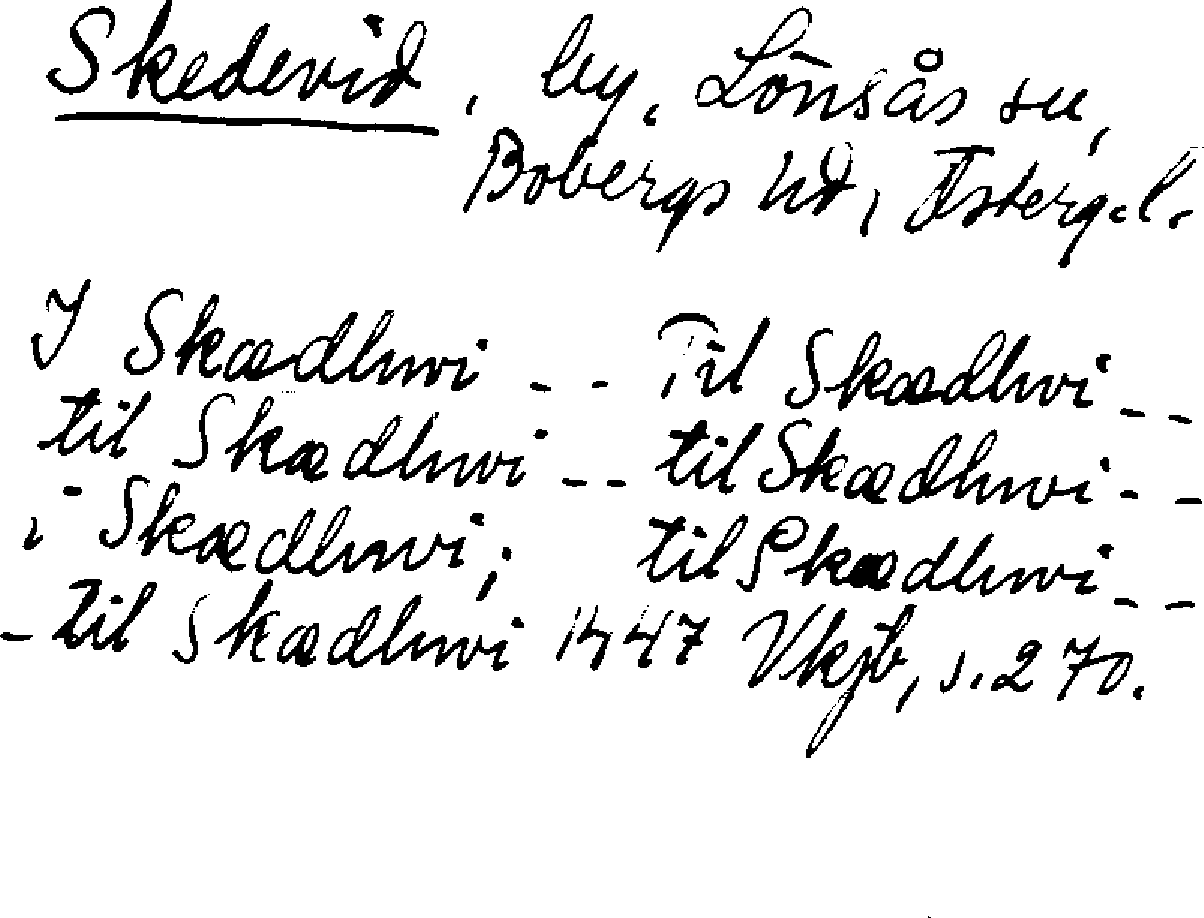 Skedevid, by, Lönsås sn,
Bobergs hd, Österg.l.
I Skædhwi - - Til Skædhwi - -
til Skædhwi - - til Skædhwi - -
i Skædhwi; til Skædhwi - -
- til Skædhwi 1447 Vkjb, s. 270.